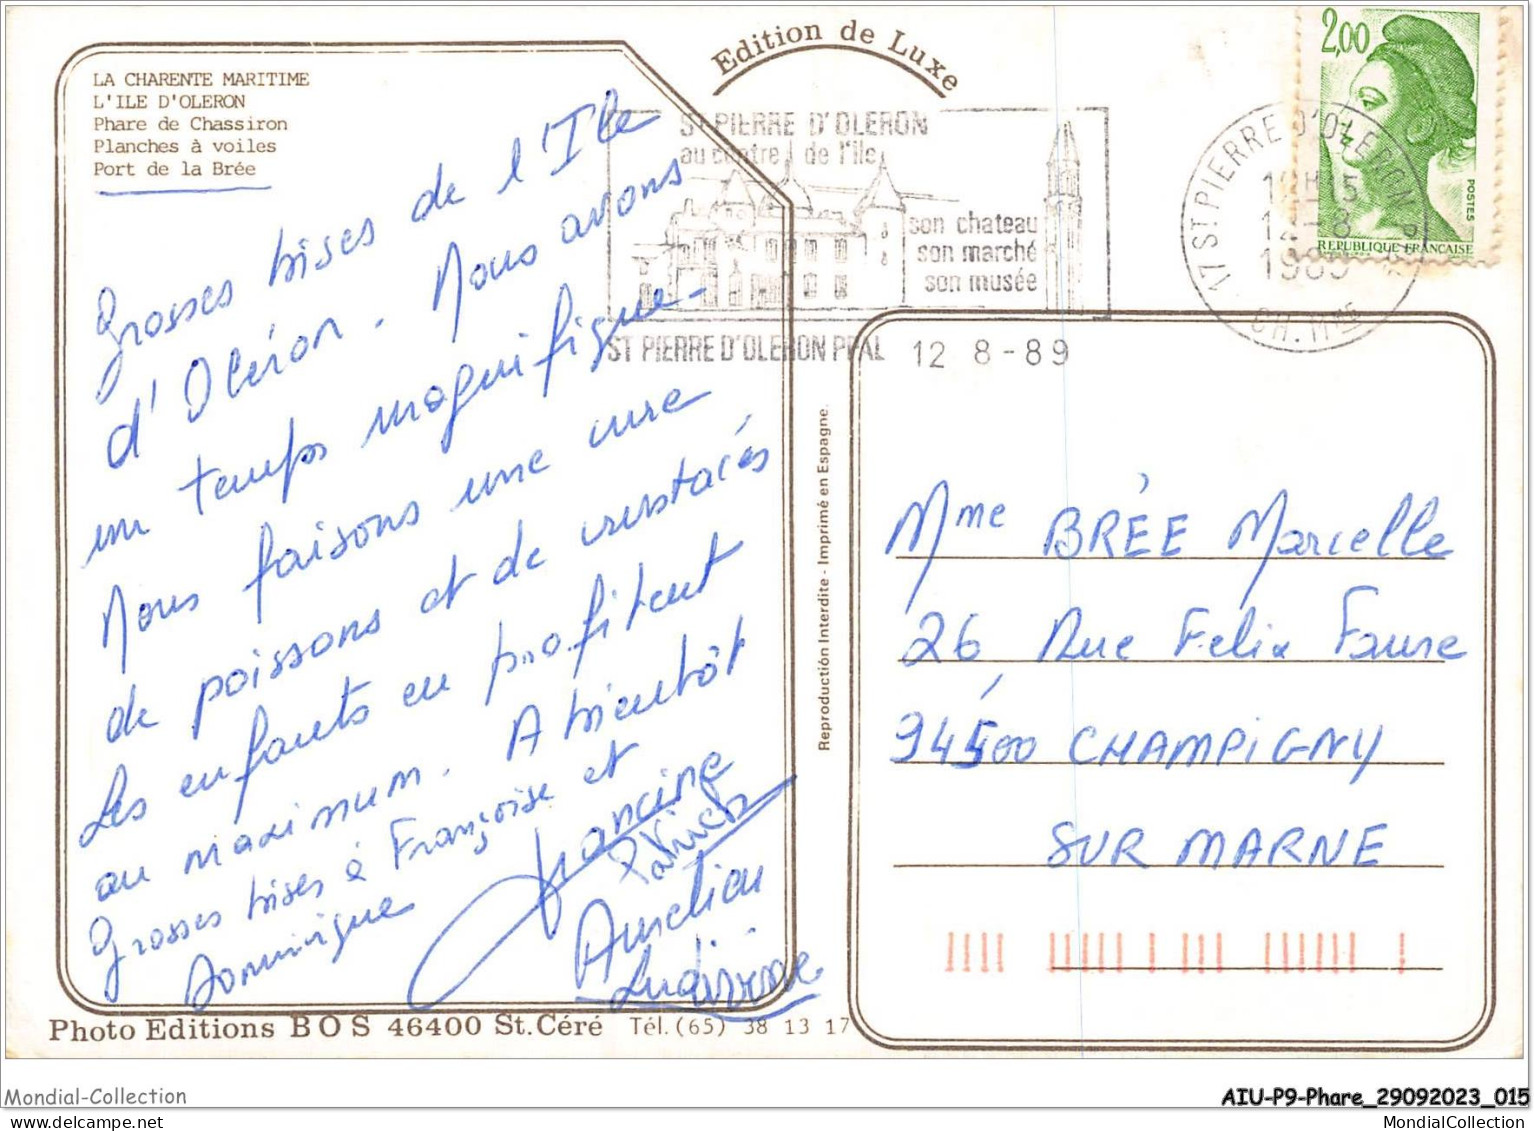 Edition de Luxe
LA CHARENTE MARITIME
L'ILE D'OLERON
Phare de Chassiron
Planches à voiles
Port de la Brée
Grosses bises de l'Ile
d'Oléron. Nous avons
un temps magnifique.
Nous faisons une cure
de poissons et de crustacés
Les enfants en profitent
au maximum. A bientôt
Grosses bises à Françoise et
Dominique
Francine
Patrick
Aurélien
Ludivine
ST PIERRE D'OLERON
au centre de l'île
son chateau
son marché
son musée
ST PIERRE D'OLERON PPAL 12 8-89
17 ST PIERRE D'OLERON
12-8
1989
CH. MME
2,00
POSTES
REPUBLIQUE FRANCAISE
Reproducción Interdite - Imprimé en Espagne
Mme BRÉE Marcelle
26 Rue Felix Faure
94500 CHAMPIGNY
SUR MARNE
Photo Editions BOS 46400 St.Céré Tél.(65) 38 13 17
Mondial-Collection
AIU-P9-Phare_29092023_015
MondialCollection